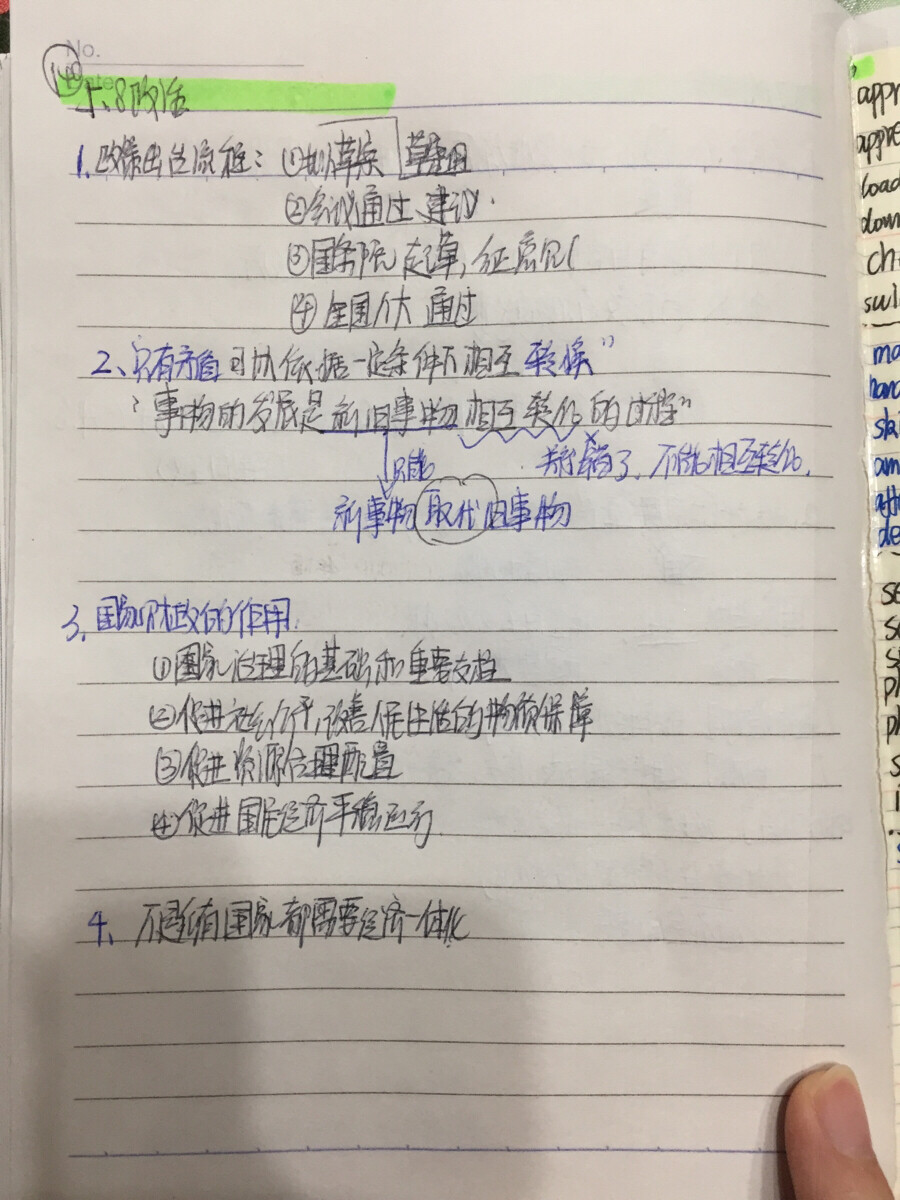 No.
Date
5、8政治
1、政策出台流程：①拟草案 草案组
②会议通过、建议.
③国务院起草，征意见(
④全国人大通过
2、只有矛盾可以依据一定条件下相互转换"
"事物的发展是新旧事物相互转化的过程"
只能
关系错了，不能相互转化.
新事物取代旧事物
3、国家财政的作用.
①国家治理的基础和重要支柱
②促进社会公平，改善人民生活的物质保障
③促进资源合理配置
④促进国民经济平稳运行
4、不是所有国家都需要经济一体化
appr
appre
load
down
ch
swi
ma
hand
ski
am
att
de
se
sc
s
ph
ph
s
i